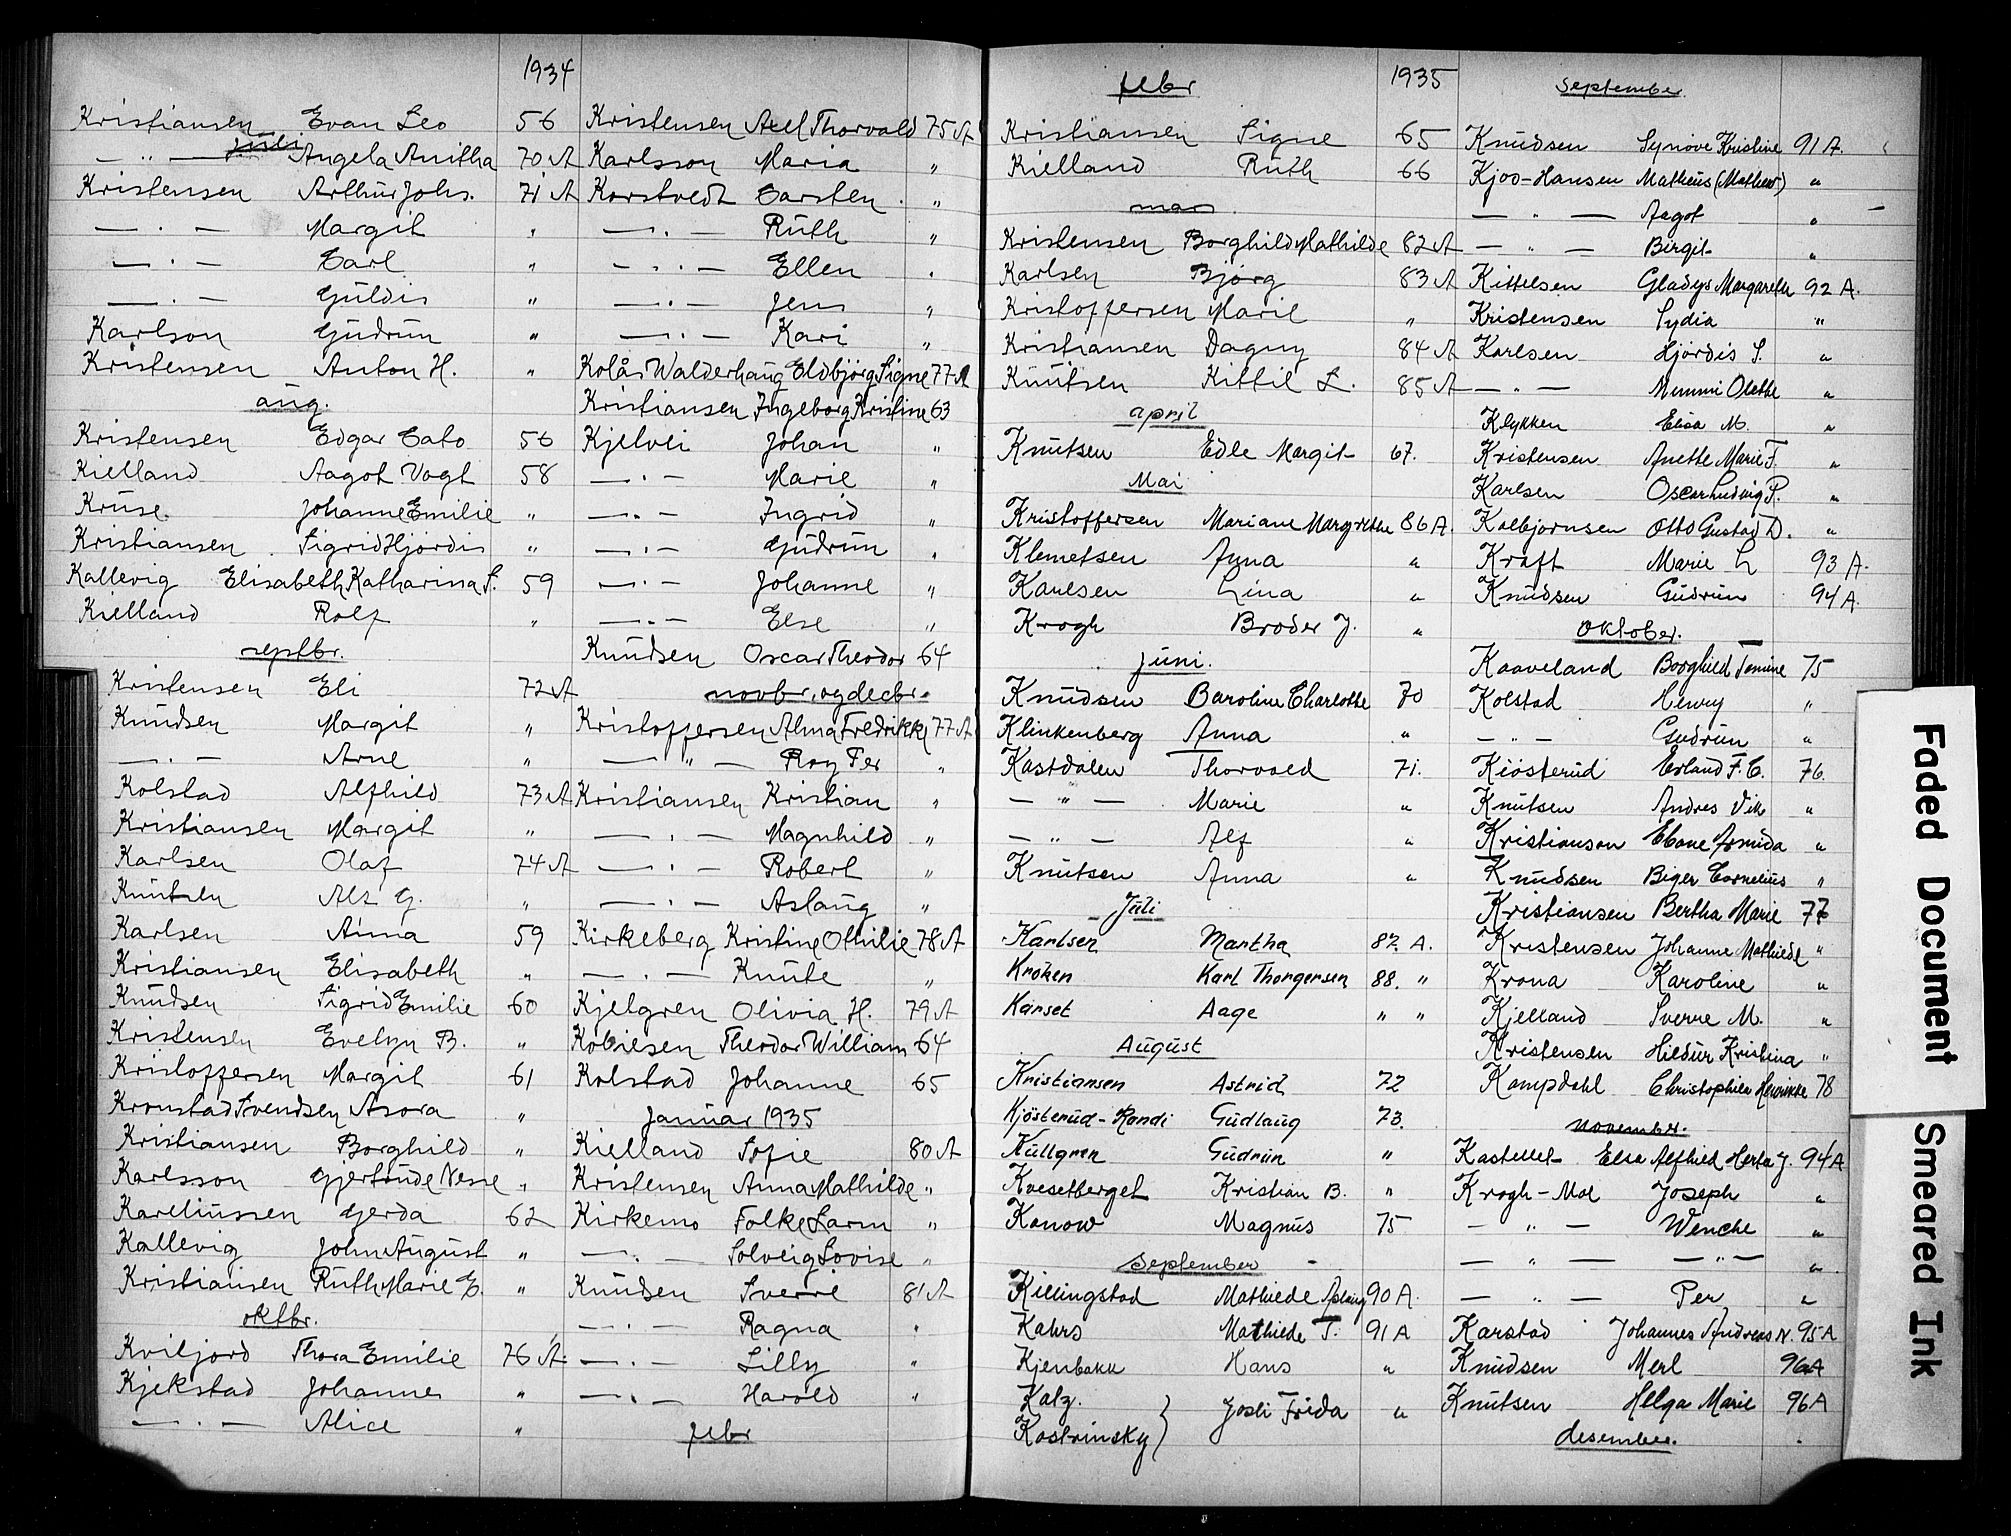 1934
Kristiansen Evan Leo 56
juli
— " — Angela Anitha 70 A
Kristensen Arthur Johs. 71 A
— " — Margit "
— " — Carl "
— " — Guldis "
Karlson Gudrun "
Kristensen Anton H. "
aug.
Kristensen Edgar Cato 56
Kielland Aagot Vogt 58
Kruse Johanne Emilie "
Kristiansen Sigrid Hjördis "
Kallevig Elisabeth Katharina S. 59
Kielland Rolf "
septbr.
Kristensen Eli 72 A
Knudsen Margit "
— " — Arne "
Kolstad Alfhild 73 A
Kristiansen Margit "
Karlsen Olaf 74 A
Knutsen Alf G. "
Karlsen Anna 59
Kristiansen Elisabeth "
Knudsen Sigrid Emilie 60
Kristensen Evelyn B. "
Kristoffersen Margit 61
Kronstad Svendsen Asora "
Kristiansen Borghild "
Karlsson Gjertrude Nesse "
Kareliussen Gerda 62
Kallevig John August "
Kristiansen Ruth Marie E. "
oktbr.
Kviljord Thora Emilie 76 A.
Kjekstad Johannes "
— " — Alice "
Kristensen Axel Thorvald 75 A
Karlsson Maria "
Korstvedt Carsten "
— " — Ruth "
— " — Ellen "
— " — Jens "
— " — Kari "
Kolås Walderhaug Eldbjörg Signe 77 A
Kristiansen Ingeborg Kristine 63
Kjelvei Johan "
— " — Marie "
— " — Ingrid "
— " — Gudrun "
— " — Johanne "
— " — Else "
Knudsen Oscar Theodor 64
novbr. og decbr.
Kristoffersen Alma Fredrikke 77 A
— " — Roy Per "
Kristiansen Kristian "
— " — Magnhild "
— " — Robert "
— " — Aslaug "
Kirkeberg Kristine Othilie 78 A
— " — Knute "
Kjelgren Olivia H. 79 A
Kobiesen Theodor William 64
Kolstad Johanne 65
Januar 1935
Kielland Sofie 80 A
Kristensen Anna Mathilde "
Kirkemo Folke Larm "
— " — Solveig Lovise "
Knudsen Sverre 81 A
— " — Ragna "
— " — Lilly "
— " — Harold "
febr
febr 1935
Kristiansen Signe 65
Kielland Ruth 66
mars
Kristensen Borghild Mathilde 82 A
Karlsen Bjørg 83 A
Kristoffersen Marie "
Kristiansen Dagny 84 A
Knutsen Kittil L. 85 A
april
Knutsen Edle Margit 67.
Mai
Kristoffersen Mariane Margrethe 86 A.
Klemetsen Anna "
Karlsen Lina "
Krogh Broder J. "
juni.
Knudsen Baroline Charlotte 70
Klinkenberg Anna "
Kastdalen Thorvald 71.
— " — Marie "
— " — Alf "
Knutsen Anna "
Juli
Karlsen Martha 87. A.
Kroken Karl Thorgersen 88. "
Karset Aage " "
August
Kristiansen Astrid 72
Kjösterud-Randi Gudlaug 73.
Kullgren Gudrun "
Kvesetberget Kristian B. "
Konow Magnus 75
September
Killingstad Mathilde Aslaug 90 A.
Kahrs Mathilde T. 91 A
Kjenbakk Hans "
Katz. } Josli Frida "
Kostrinsky
September
Knudsen Synöve Kristine 91 A.
Kjos-Hansen Matheus (Mathew) "
— " — Aagot "
— " — Birgit "
Kittelsen Gladys Margarethe 92 A.
Kristensen Lydia "
Karlsen Hjördis S. "
— " — Mimmi Olethe "
Klykken Elisa M. "
Kristensen Anette Marie F. "
Karlsen Oscar Ludvig P. "
Kolbjornsen Otto Gustav D. "
Kraft Marie L 93 A.
Knudsen Gudrun 94 A.
Oktober.
Kaaveland Borghild Tomine 75
Kolstad Henry "
— " — Gudrun "
Kiösterud Erland F. C. 76.
Knutsen Andres Vik "
Kristianson Ebone Armida "
Knudsen Biger Cornelius "
Kristiansen Bertha Marie 77
Kristensen Johanne Mathilde "
Krona Karoline "
Kjelland Sverre M. "
Kristensen Hildur Kristina "
Kampdahl Christophine Henrikke 78
november.
Kastellet Elsa Alfhild Herta J. 94 A
Krogh-Moe Joseph "
— " — Wenche "
— " — — " — "
— " — Per "
Karstad Johannes Andreas N. 95 A
Knudsen Merl 96 A
Knutsen Helga Marie 96 A
desember.
Faded Document
Smeared Ink